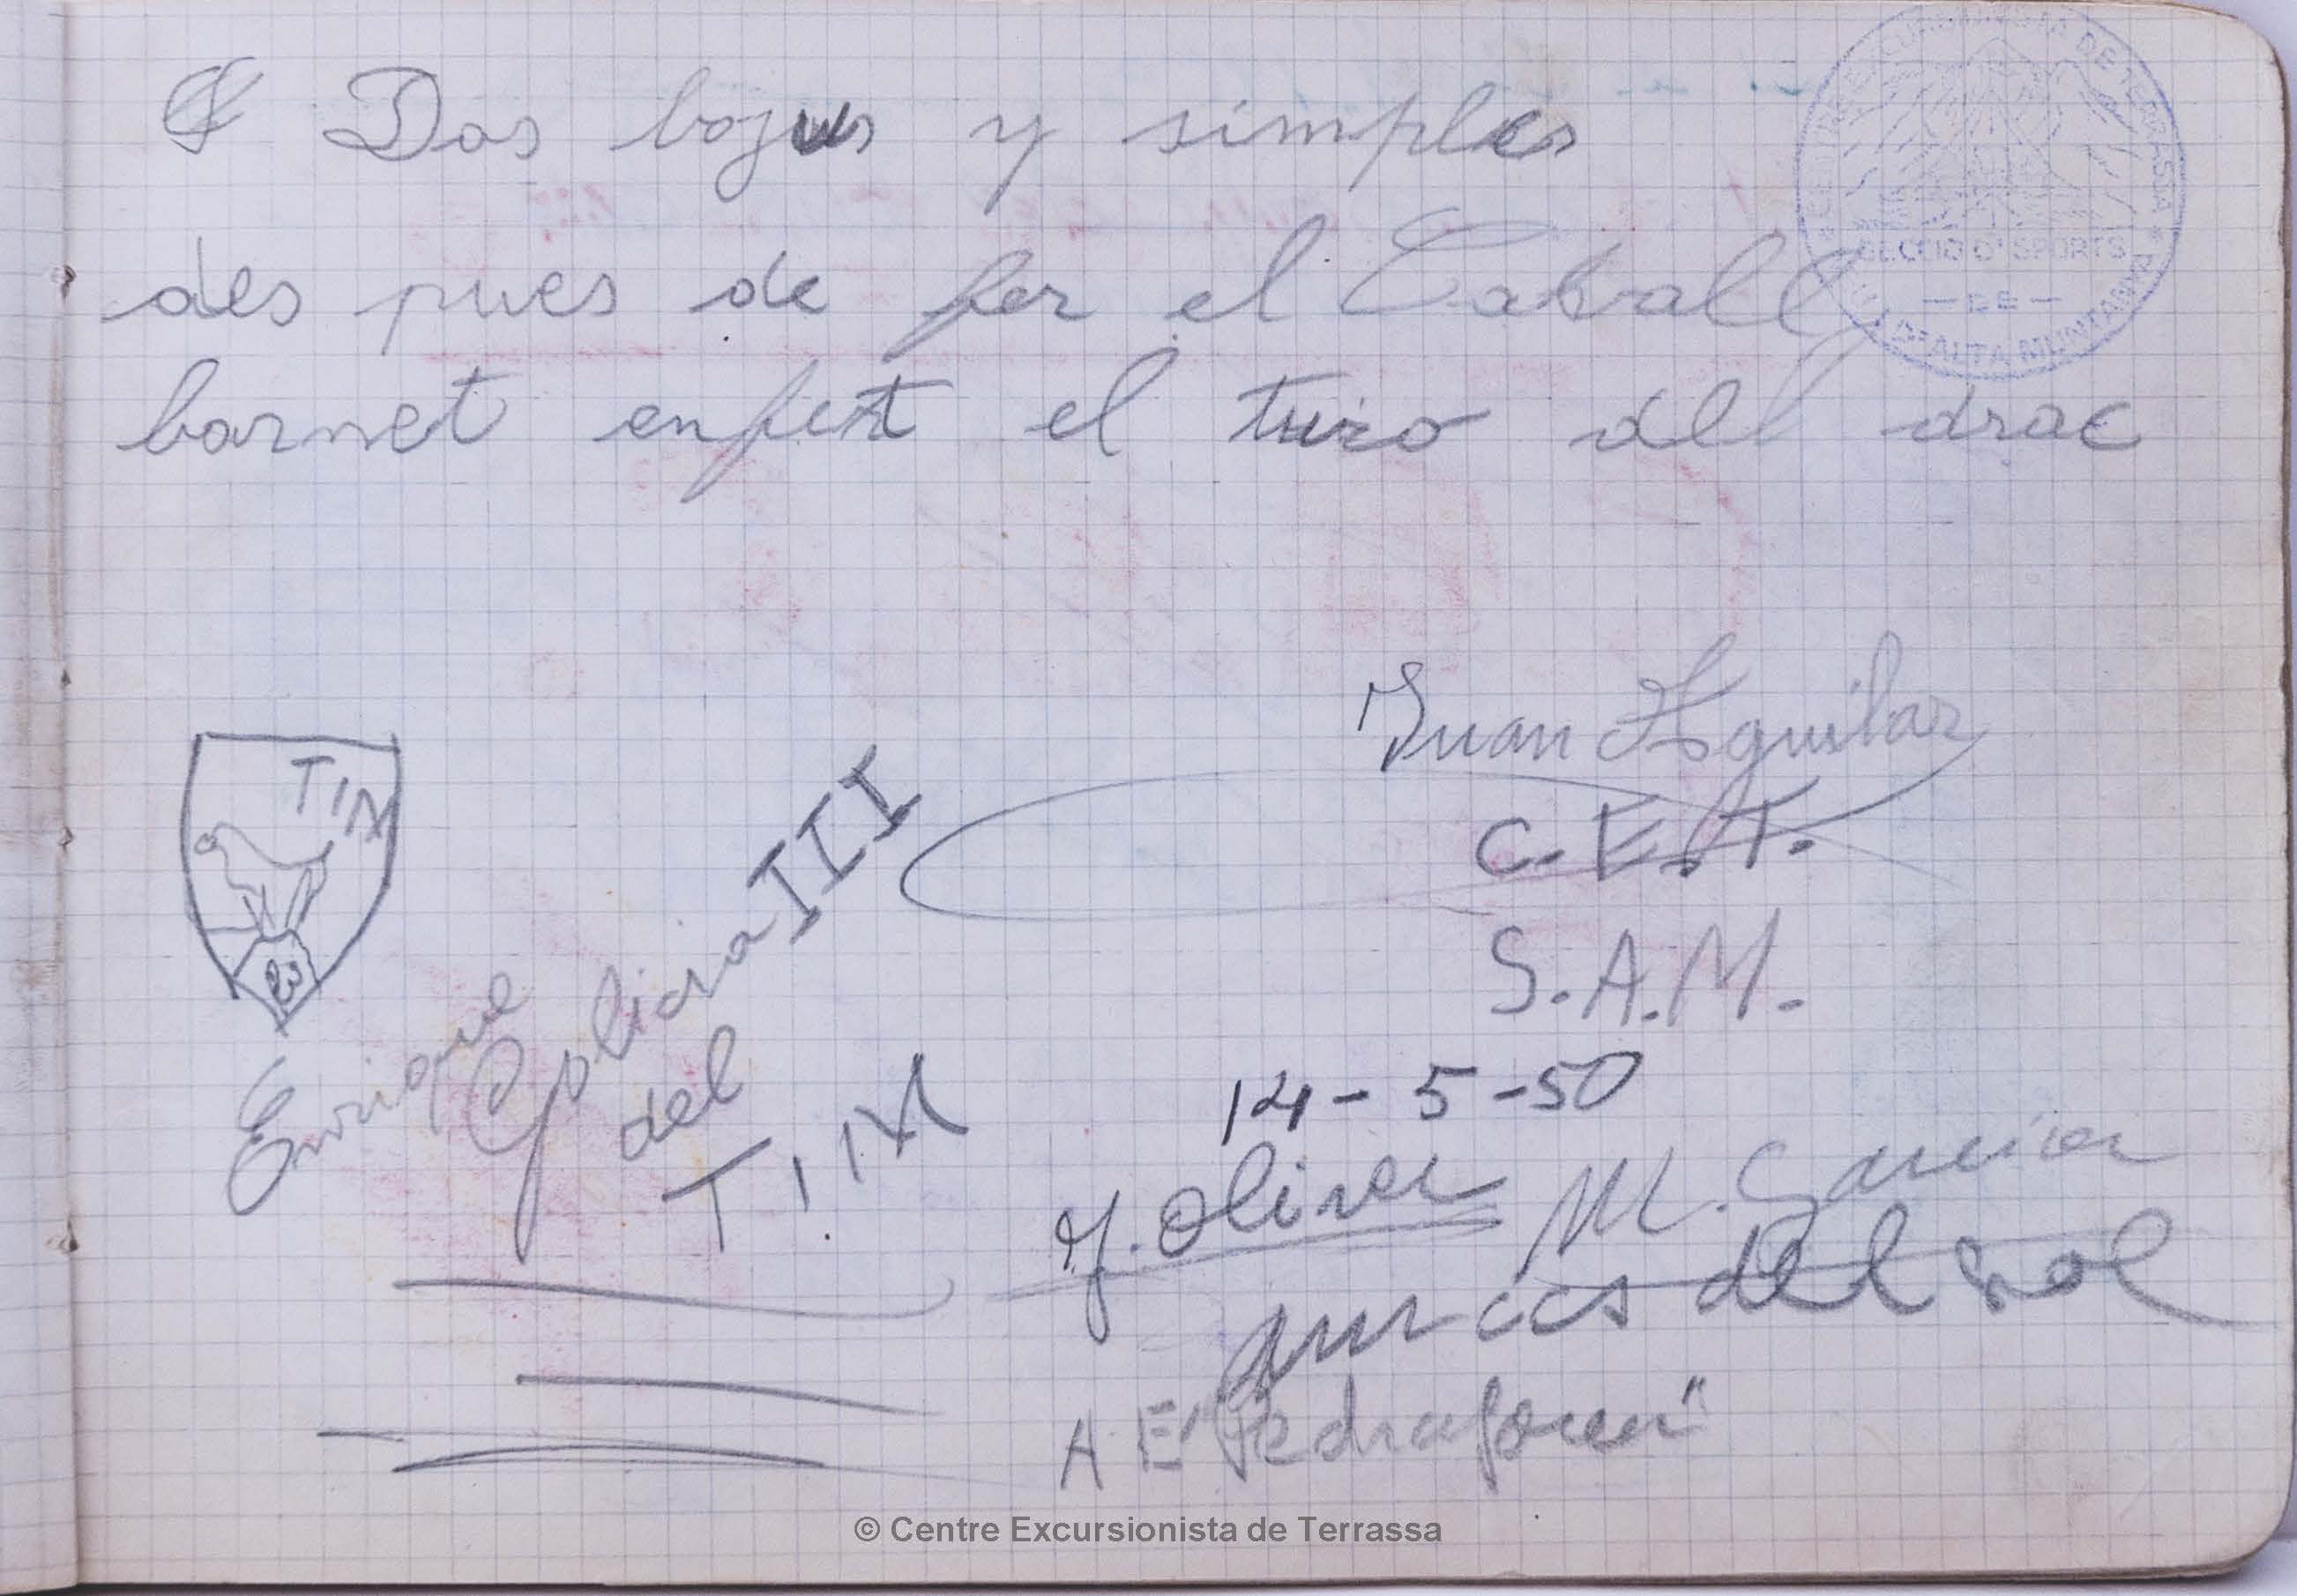 Dos bojus y simples
des pues de fer el Caball
barnet enfert el turo del drac
CENTRE EXCURSIONISTA DE TERRASSA
SECCIO D'SPORTS
— DE —
D'ALTA MUNTANYA
Juan Aguilar
C.E.T.
S.A.M.
14-5-50
TIM
23
Enrique
III
del
J. Oliver M. Garcia
del sol
A E "Pedraforca"
© Centre Excursionista de Terrassa